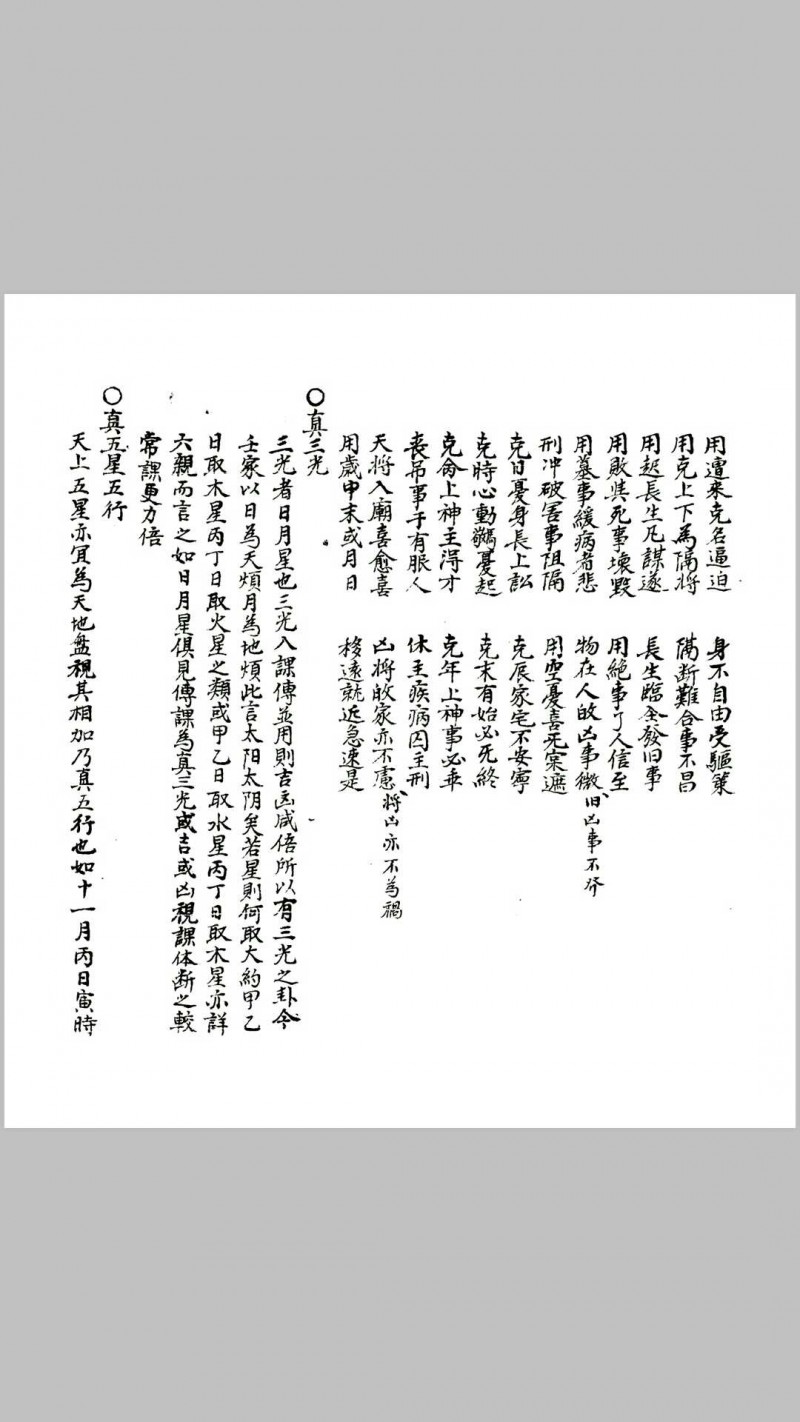 用遭夹克名逼迫　身不自由受驅策
用克上下為隔將　隔断難合事不昌
用起長生凡謀遂　長生臨全發旧事
用敗與死事壊毀　用絶事了人信至
用墓事緩病者悲　物在人故凶事微、旧凶事不齐
刑冲破害事阻隔　用空憂喜无寔遮
克日憂身長上訟　克辰家宅不安寧
克時心動驚憂起　克末有始必死終
克命上神主淂才　克年上神事必乖
喪吊事于有服人　休主疾病囚主刑
天将入廟喜愈喜　凶将故家亦不慮、将凶亦不為禍
用歲中末或月日　移遠就近急速是
○真三光
三光者日月星也三光入課傳並用則吉凶咸倍所以有三光之卦今
壬家以日為天煩月為地煩此言太阳太阴矣若星則何取大約甲乙
日取木星丙丁日取火星之類或甲乙日取水星丙丁日取木星亦詳
六親而言之如日月星俱見傳課為真三光或吉或凶視課体断之較
常課更力倍
○真五星五行
天上五星亦宜為天地盤視其相加乃真五行也如十一月丙日寅時